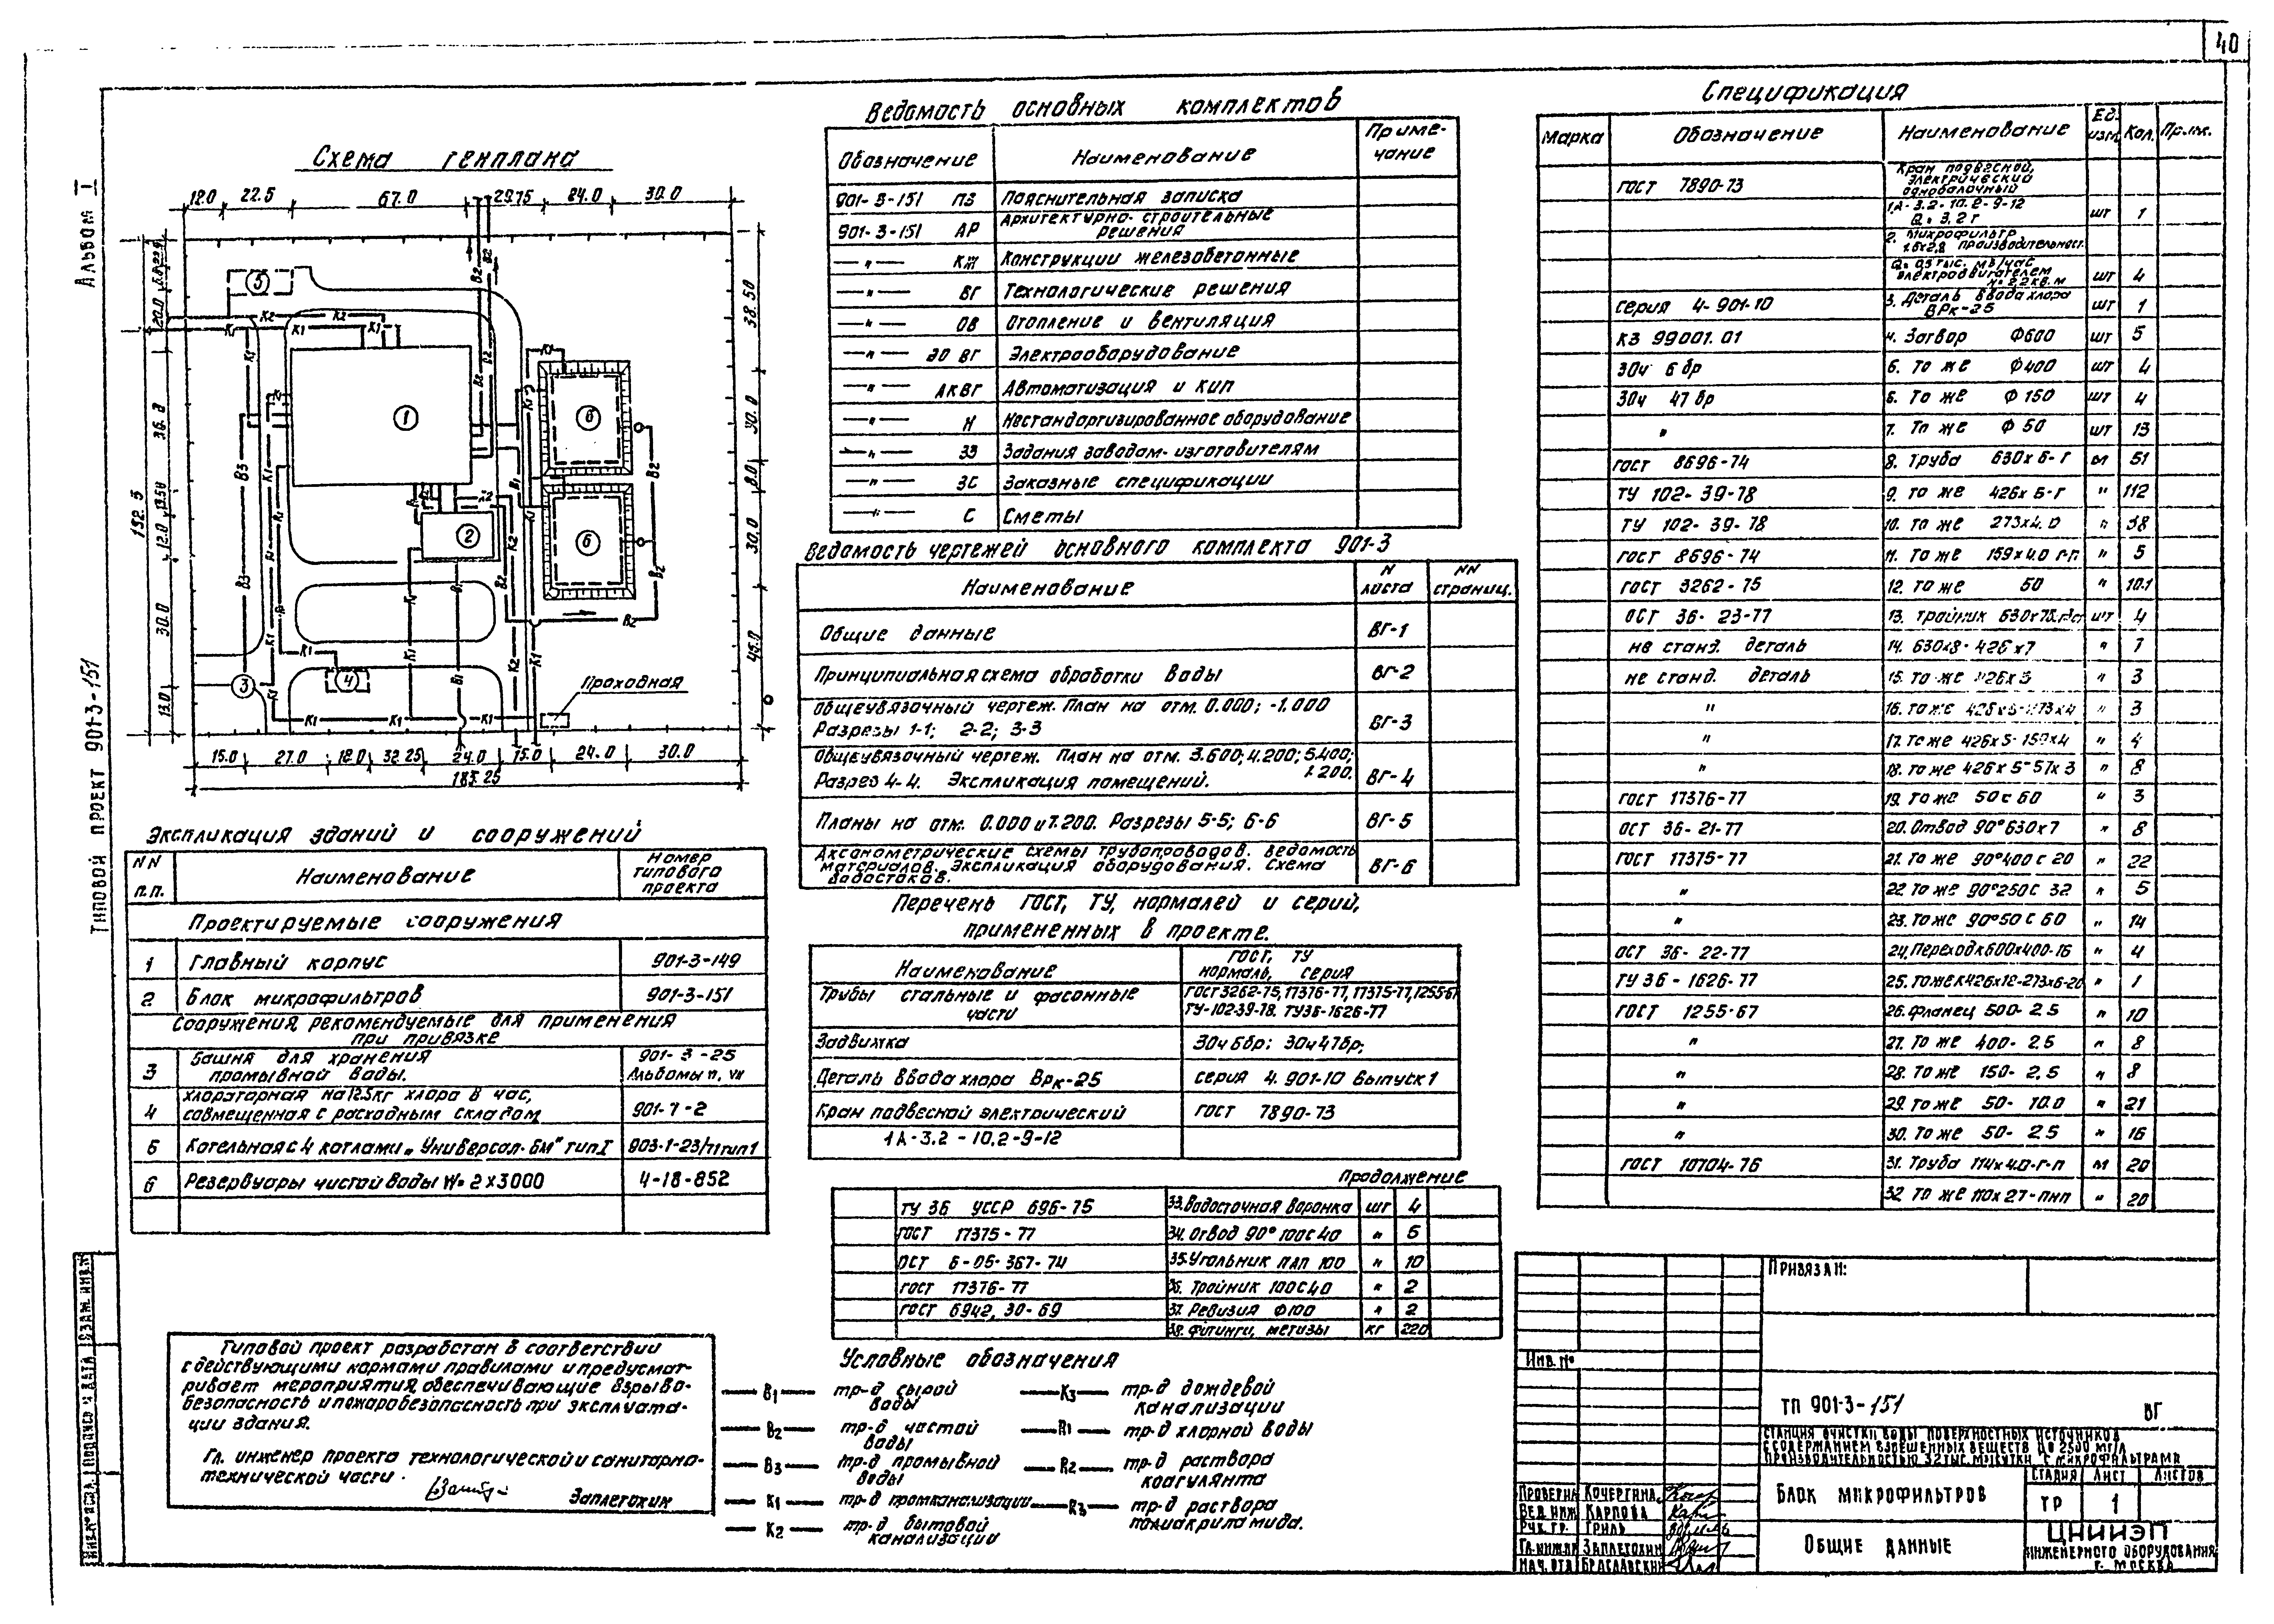 40
Альбом I
Типовой проект 901-3-151
Схема генплана
12.0 22.5 67.0 29.75 24.0 30.0
38.50
30.0
8.0
30.0
45.0
20.0
36.0
13.50
12.0
30.0
13.0
192.5
15.0 27.0 18.0 32.25 24.0 15.0 24.0 30.0
185.25
Проходная
Экспликация зданий и сооружений
NN п.п. Наименование Номер типового проекта
Проектируемые сооружения
1 Главный корпус 901-3-149
2 Блок микрофильтров 901-3-151
Сооружения, рекомендуемые для применения
при привязке
3 Башня для хранения промывной воды. 901-3-25 Альбомы II, VII
4 Хлораторная на 12.5кг хлора в час, совмещенная с расходным складом 901-7-2
5 Котельная с 4 котлами „Универсал-6М" тип I 903-1-23/71 тип 1
6 Резервуары чистой воды W=2х3000 4-18-852
Типовой проект разработан в соответствии
с действующими нормами правилами и предусмат-
ривает мероприятия, обеспечивающие взрыво-
безопасность и пожаробезопасность при эксплуата-
ции здания.
Гл. инженер проекта технологической и санитарно-
технической части.
Заплетохин
Ведомость основных комплектов
Обозначение Наименование Примечание
901-3-151 ПЗ Пояснительная записка
901-3-151 АР Архитектурно-строительные решения
—"— КЖ Конструкции железобетонные
—"— ВГ Технологические решения
—"— ОВ Отопление и вентиляция
—"— ЭО ВГ Электрооборудование
—"— АК ВГ Автоматизация и КИП
—"— Н Нестандартизированное оборудование
—"— ЗЗ Задания заводам-изготовителям
—"— ЗС Заказные спецификации
—"— С Сметы
Ведомость чертежей основного комплекта 901-3
Наименование N листа NN страниц.
Общие данные ВГ-1
Принципиальная схема обработки воды ВГ-2
Общеувязочный чертеж. План на отм. 0.000; -1.000
Разрезы 1-1; 2-2; 3-3 ВГ-3
Общеувязочный чертеж. План на отм. 3.600; 4.200; 5.400; 7.200.
Разрез 4-4. Экспликация помещений. ВГ-4
Планы на отм. 0.000 и 7.200. Разрезы 5-5; 6-6 ВГ-5
Аксонометрические схемы трубопроводов. Ведомость
материалов. Экспликация оборудования. Схема
водостоков. ВГ-6
Перечень ГОСТ, ТУ, нормалей и серий,
примененных в проекте.
Наименование ГОСТ, ТУ нормаль, серия
Трубы стальные и фасонные части ГОСТ 3262-75, 17376-77, 17375-77, 1255-67
ТУ-102-39-78. ТУ36-1626-77
Задвижка 30ч 6бр; 30ч 47бр;
Деталь ввода хлора ВРк-25 серия 4.901-10 Выпуск 1
Кран подвесной электрический ГОСТ 7890-73
1А-3.2-10.2-9-12
Продолжение
ТУ 36 УССР 696-75 33.Водосточная воронка шт 4
ГОСТ 17375-77 34. Отвод 90° 100с40 " 5
ОСТ 6-05-367-74 35.Угольник ПНП 100 " 10
ГОСТ 17376-77 36. Тройник 100С40 " 2
ГОСТ 6942, 30-69 37. Ревизия Ф100 " 2
38. Фитинги, метизы кг 220
Условные обозначения
В1 тр-д сырой воды
В2 тр-д чистой воды
В3 тр-д промывной воды
К1 тр-д промканализации
К2 тр-д бытовой канализации
К3 тр-д дождевой канализации
R1 тр-д хлорной воды
R2 тр-д раствора коагулянта
R3 тр-д раствора полиакриламида.
Спецификация
Марка Обозначение Наименование Ед. изм. Кол. Прим.
ГОСТ 7890-73 Кран подвесной, электрический однобалочный
1А-3.2-10.2-9-12 Q=3.2т шт 1
2. Микрофильтр 1.5х2,8 производительност.
Q=0.5 тыс. м3/час электродвигателем N=2.2кв.м шт 4
серия 4-901-10 3. Деталь ввода хлора ВРк-25 шт 1
КЗ 99001.01 4. Затвор Ф600 шт 5
30ч 6 бр 5. То же Ф400 шт 4
30ч 47 бр 6. То же Ф150 шт 4
" 7. То же Ф50 шт 13
ГОСТ 8696-74 8. Труба 630х6-Г м 51
ТУ 102-39-78 9. то же 426х5-Г " 112
ТУ 102-39-78 10. то же 273х4.0 " 38
ГОСТ 8696-74 11. То же 159х4.0 г-п " 5
ГОСТ 3262-75 12. то же 50 " 10.1
ОСТ 36-23-77 13. Тройник шт 4
не станд. деталь 14. 630х8-426х7 " 1
не станд. деталь 15. то же 426х5 " 3
" 16. то же 426х5-273х4 " 3
" 17. то же 426х5-159х4 " 4
" 18. то же 426х5-57х3 " 8
ГОСТ 17376-77 19. То же 50с60 " 3
ОСТ 36-21-77 20. Отвод 90° 630х7 " 8
ГОСТ 17375-77 21. То же 90° 400с20 " 22
" 22 То же 90° 250с32 " 5
" 23. То же 90° 50с60 " 14
ОСТ 36-22-77 24. Переход к600х400-16 " 4
ТУ 36-1626-77 25. То же к426х12-273х6-20 " 1
ГОСТ 1255-67 26. Фланец 500-2.5 " 10
" 27. То же 400-2.5 " 8
" 28. То же 150-2.5 " 8
" 29. То же 50-10.0 " 21
" 30. То же 50-2.5 " 16
ГОСТ 10704-76 31. Труба 114х4.0-г-п м 20
32. То же 110х27-ПНП " 20
Привязан:
Инв. №
ТП 901-3-151 ВГ
Станция очистки воды поверхностных источников
с содержанием взвешенных веществ до 2500 мг/л
производительностью 32 тыс. м3/сутки с микрофильтрами
Блок микрофильтров
Стадия Лист Листов
ТР 1
Общие данные
ЦНИИЭП
инженерного оборудования
г. Москва
Проверил Кочергина
Вед. инж. Карпова
Рук. гр. Гриль
Гл. инж. пр. Заплетохин
Нач. отд. Браславский
Инв. № подл. Подпись и дата Взам. инв. №